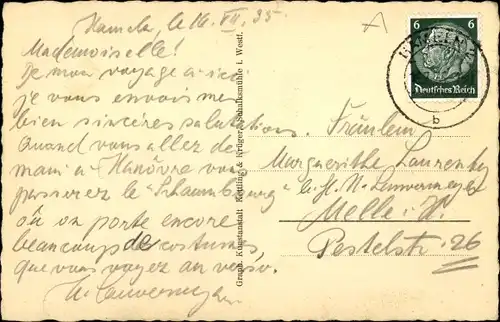 Hameln, le 16. VII. 35.
Mademoiselle!
De mon voyage a ici
je vous envois mes
bien sincères salutations.
Quand vous allez de
main a Hanôvre vous
passerez le "Schaumburg"
où on porte encore
beaucoup de costumes,
que vous voyez au verso.
Graph. Kunstanstalt Kettling & Krüger, Schalksmühle i. Westf.
6 6
Deutsches Reich
b
Fräulein
Marguerithe
b. H. N.
Melle i. H.
Pestelstr. 26